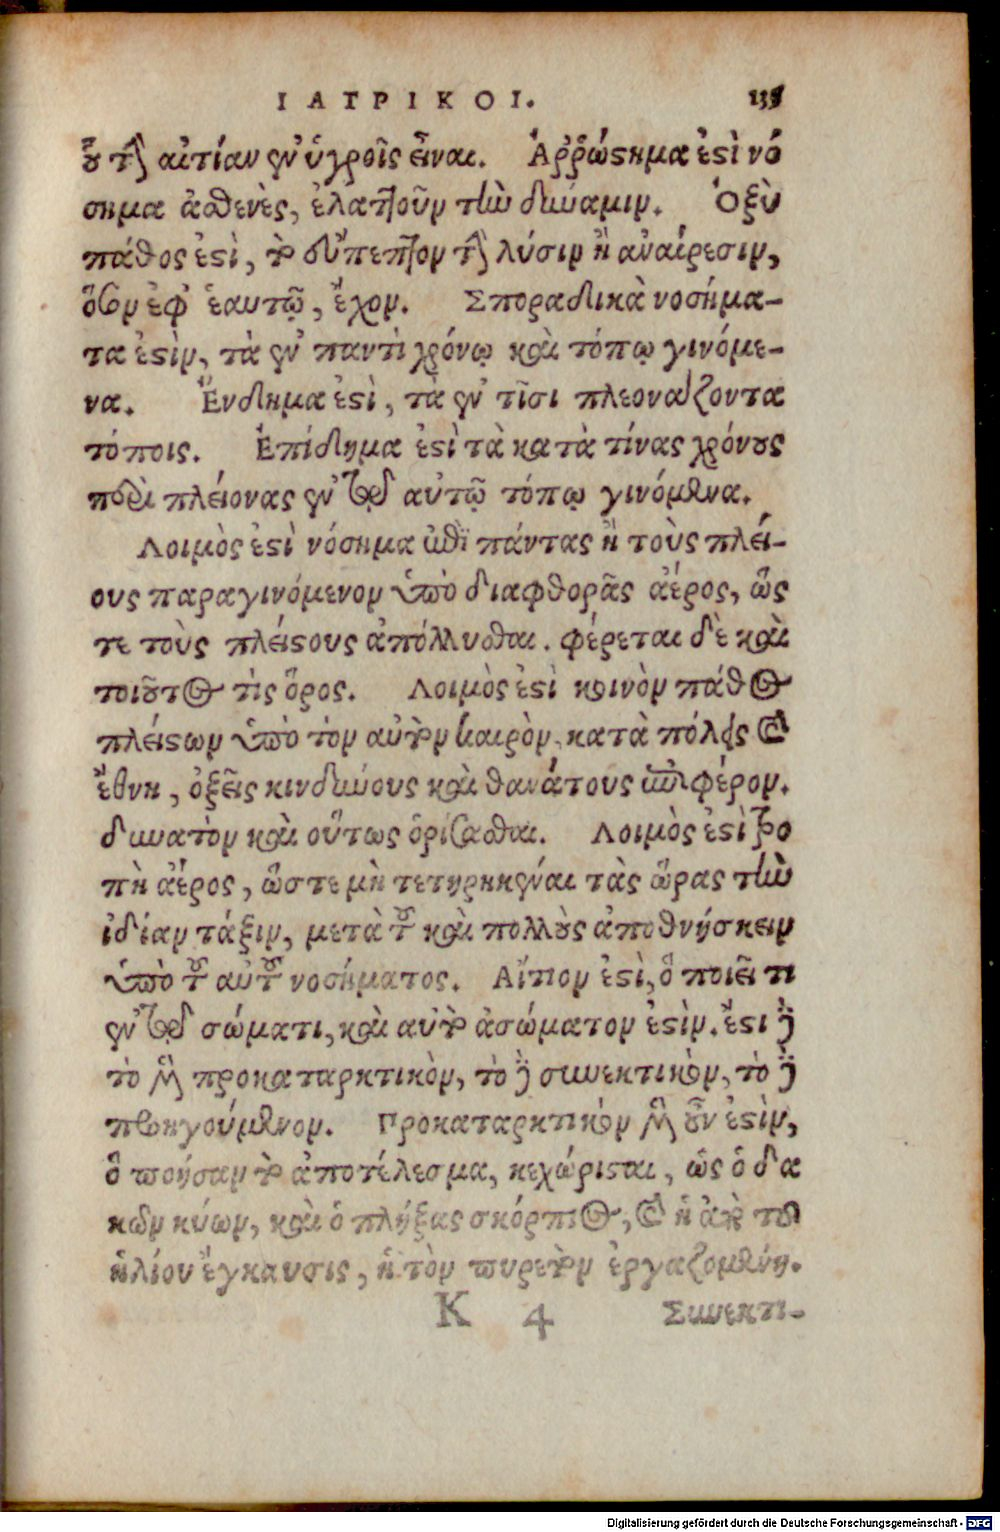 ΙΑΤΡΙΚΟΙ.
οὗ τὴν αἰτίαν ἐν ὑγροῖς εἶναι. Ἀῤῥώστημα ἐστὶ νό
σημα ἀσθενὲς, ἐλαττοῦν τὴν δύναμιν. Ὀξὺ
πάθος ἐστὶ, τὸ εὐπεπτον τὴν λύσιν ἢ αναίρεσιν,
ὅσον ἐφ' ἑαυτῷ, ἔχον. Σποραδικὰ νοσήμα-
τα ἐστὶν, τὰ ἐν παντὶ χρόνῳ καὶ τόπῳ γινόμε-
να. Ἔνδημα ἐστὶ, τὰ ἐν τῖσι πλεονάζοντα
τόποις. Ἐπίδημα ἐστὶ τὰ κατὰ τίνας χρόνους
περὶ πλείονας ἐν τῷ αὐτῷ τόπῳ γινόμενα.
Λοιμὸς ἐστὶ νόσημα ἐπὶ πάντας ἢ τοὺς πλεί-
ους παραγινόμενον ὑπὸ διαφθορᾶς ἀέρος, ὥς
τε τοὺς πλείστους ἀπόλλυσθαι. φέρεται δὲ καὶ
τοιοῦτος τὶς ὅρος. Λοιμὸς ἐστὶ κοινὸν πάθος
πλείστων ὑπὸ τὸν αὐτὸν καιρὸν, κατὰ πόλεις καὶ
ἔθνη, ὀξεῖς κινδύνους καὶ θανάτους ἐπιφέρον.
δυνατὸν καὶ οὕτως ὁρίσασθαι. Λοιμὸς ἐστὶ τρο
πὴ ἀέρος, ὥστε μὴ τετηρηκέναι τὰς ὥρας τὴν
ἰδίαν τάξιν, μετὰ τοῦ καὶ πολλοὺς ἀποθνήσκειν
ὑπὸ τοῦ αὐτοῦ νοσήματος. Αἴτιον ἐστὶ, ὃ ποιεῖ τι
ἐν τῷ σώματι, καὶ αὐτὸ ἀσώματον ἐστὶν. ἔστι δὲ
τὸ μὲν προκαταρκτικὸν, τὸ δὲ συνεκτικὸν, τὸ δὲ
προηγούμενον. Προκαταρκτικὸν μὲν οὖν ἐστὶν,
ὃ ποιῆσαν τὸ ἀποτέλεσμα, κεχώρισται, ὡς ὁ δα
κὼν κύων, καὶ ὁ πλήξας σκόρπιος, καὶ ἡ ἀπὸ τοῦ
ἡλίου ἔγκαυσις, ἡ τὸν πυρετὸν ἐργαζομένη.
Κ 4 Συνεκτι-
Digitalisierung gefördert durch die Deutsche Forschungsgemeinschaft - DFG